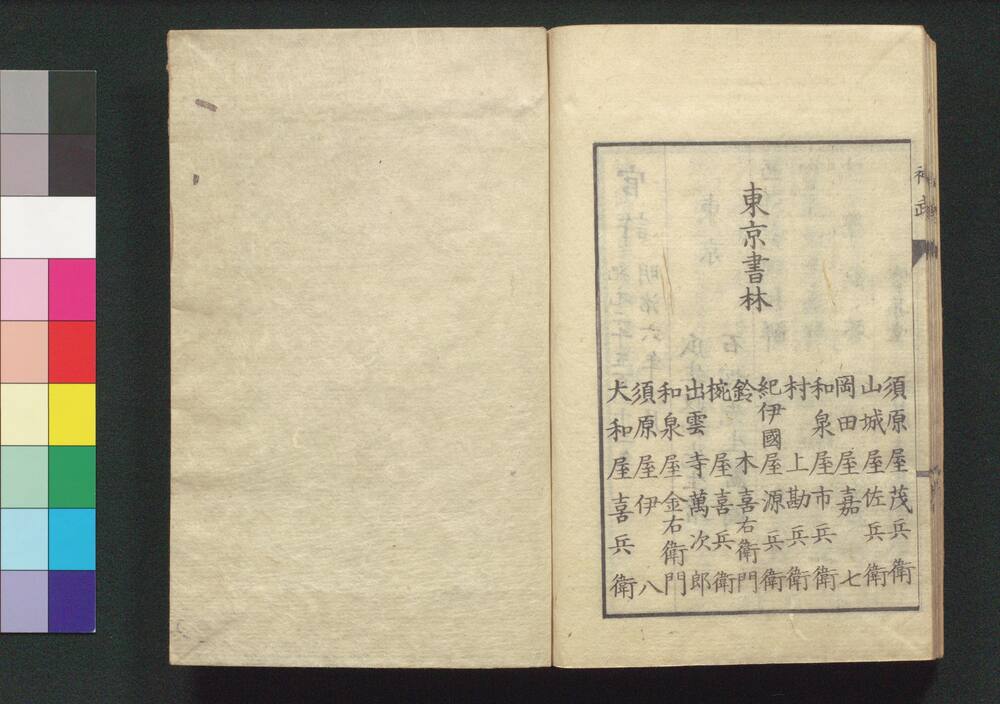 東京書林
須原屋茂兵衛
山城屋佐兵衛
岡田屋嘉七
和泉屋市兵衛
村上勘兵衛
紀伊國屋源兵衛
鈴木喜右衛門
椀屋喜兵衛
出雲寺萬次郎
和泉屋金右衛門
須原屋伊八
大和屋喜兵衛